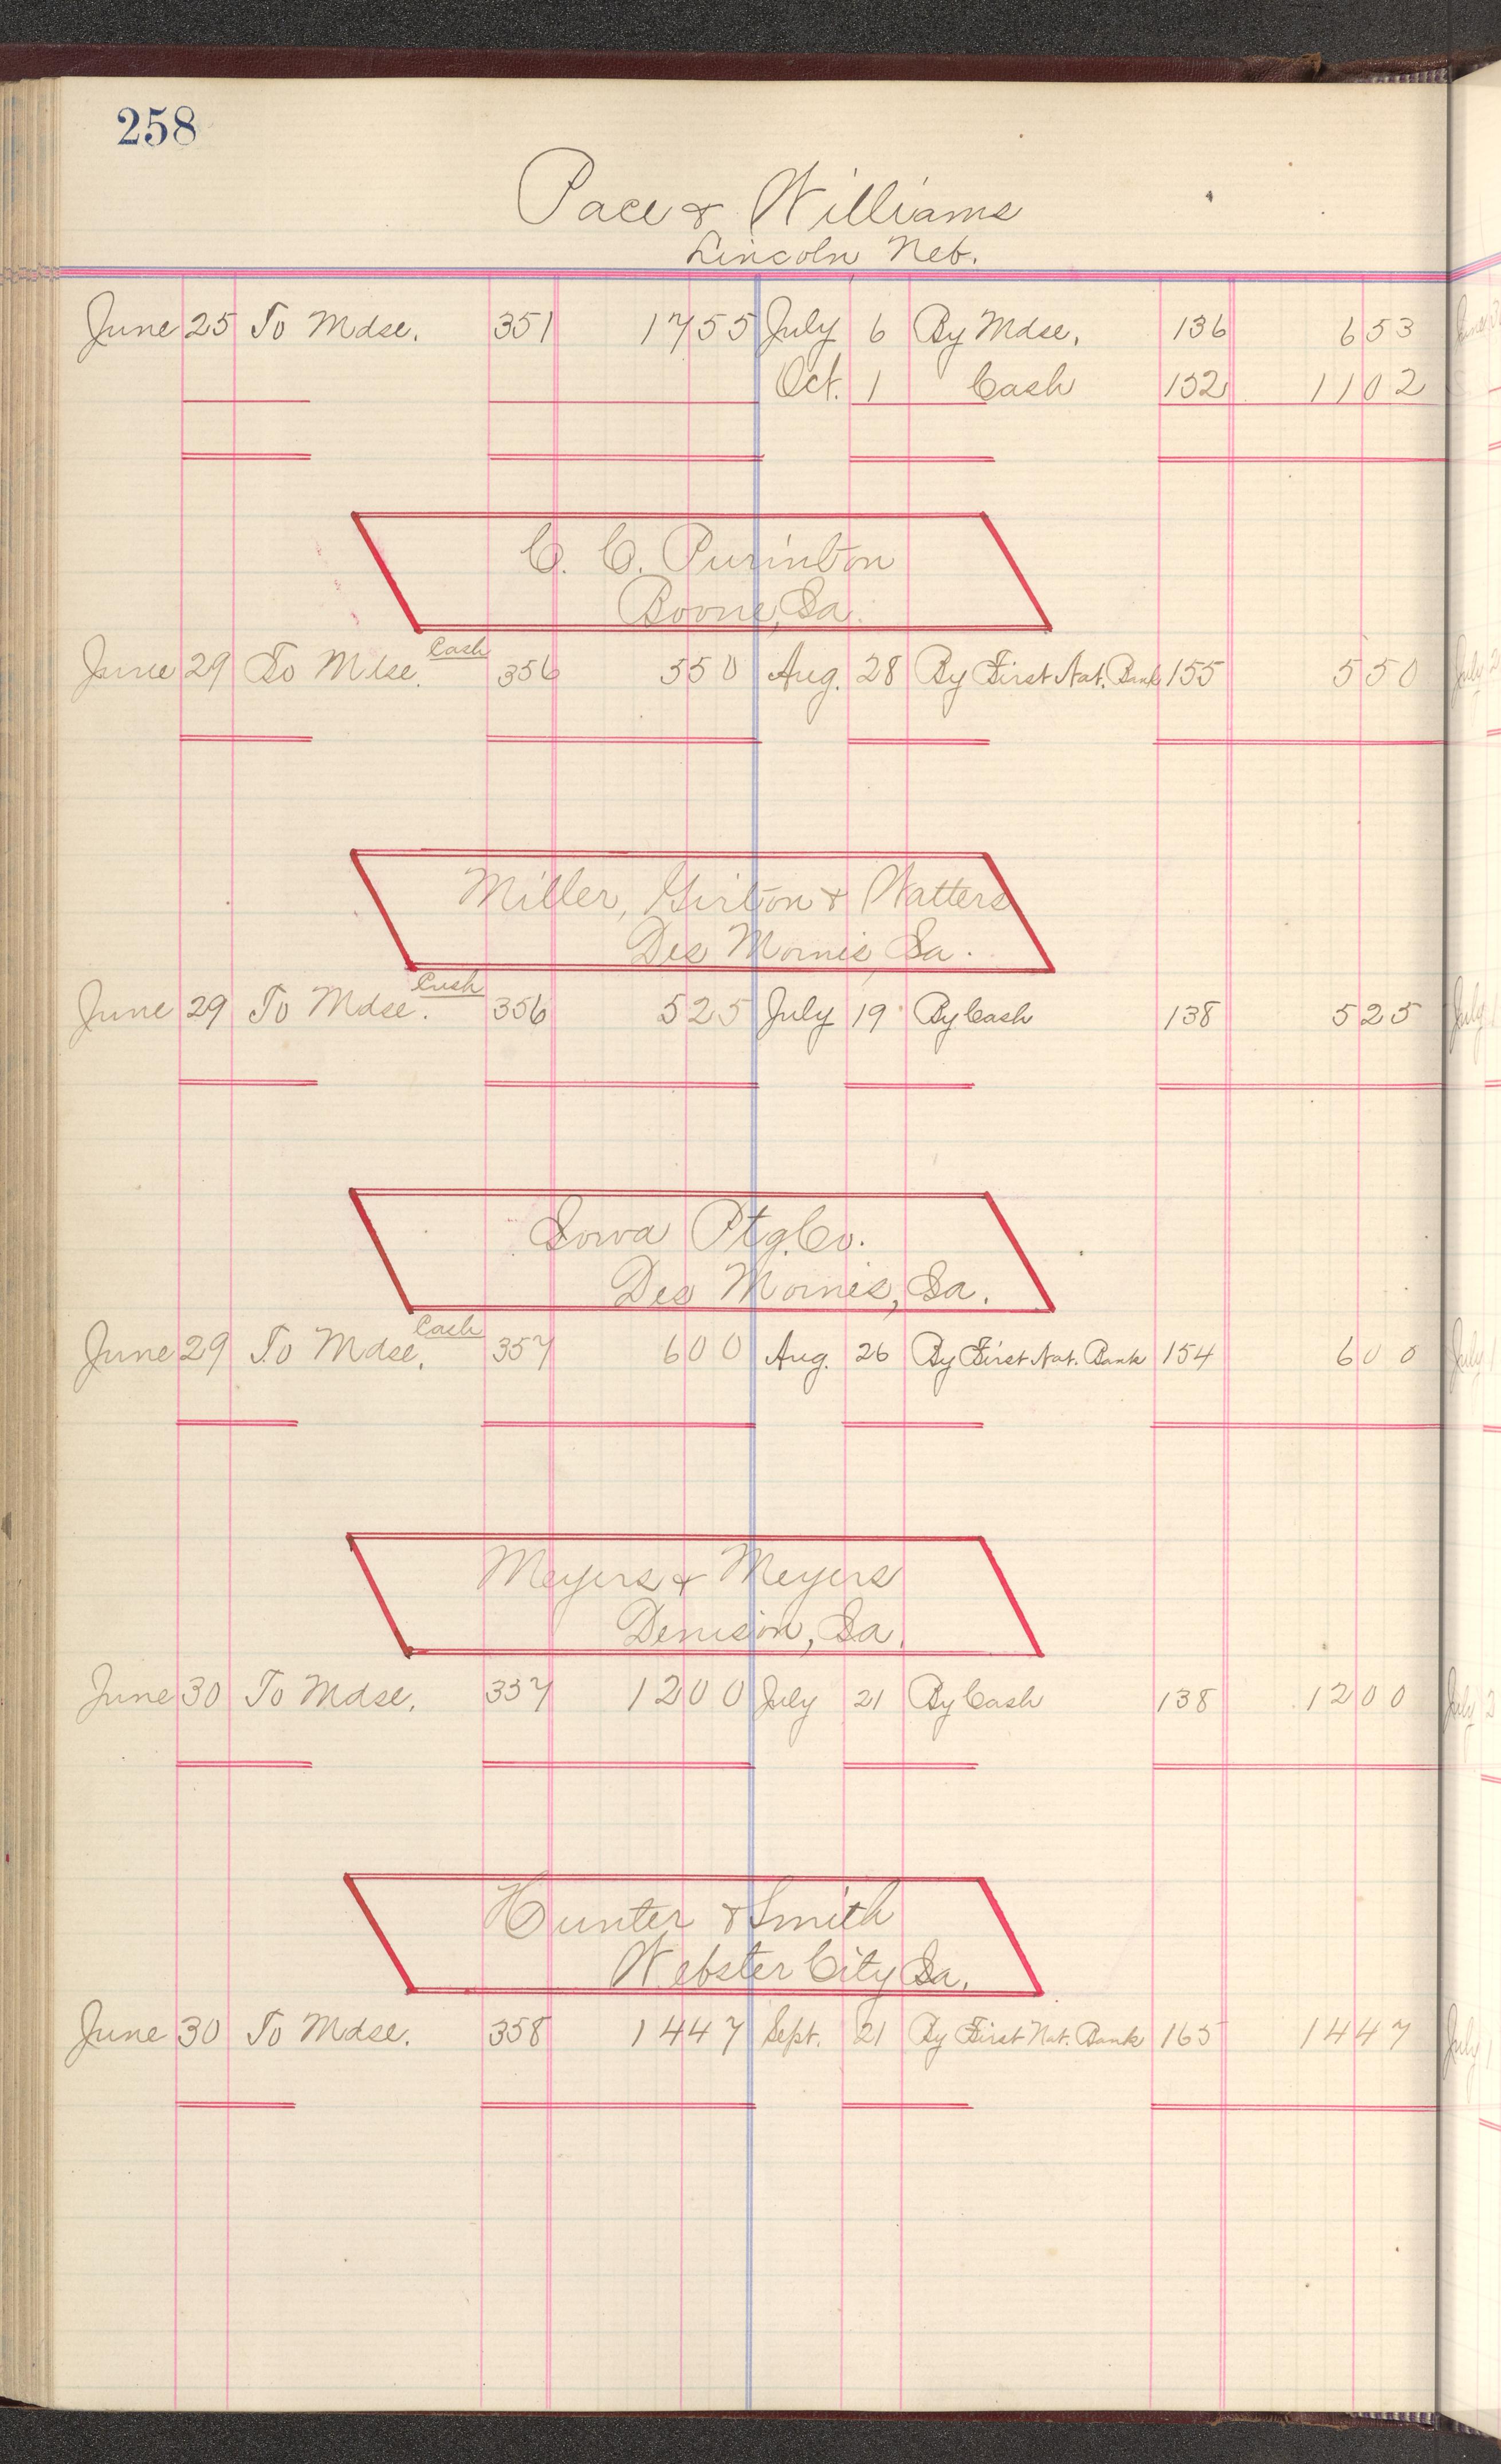 258
Pace & Williams
Lincoln Neb.
June 25 To Mdse. 351 1755 July 6 By Mdse. 136 653
Oct. 1 Cash 152 1102
C. C. Purinton
Boone, Ia.
Cash
June 29 To Mdse. 356 550 Aug. 28 By First Nat. Bank 155 550
Miller, Girton & Watters
Des Moines, Ia.
Cash
June 29 To Mdse. 356 525 July 19 By Cash 138 525
Iowa Ptg. Co.
Des Moines, Ia.
Cash
June 29 To Mdse. 357 600 Aug. 26 By First Nat. Bank 154 600
Meyers & Meyers
Denison, Ia.
June 30 To Mdse. 357 1200 July 21 By Cash 138 1200
Hunter & Smith
Webster City Ia.
June 30 To Mdse. 358 1447 Sept. 21 By First Nat. Bank 165 1447